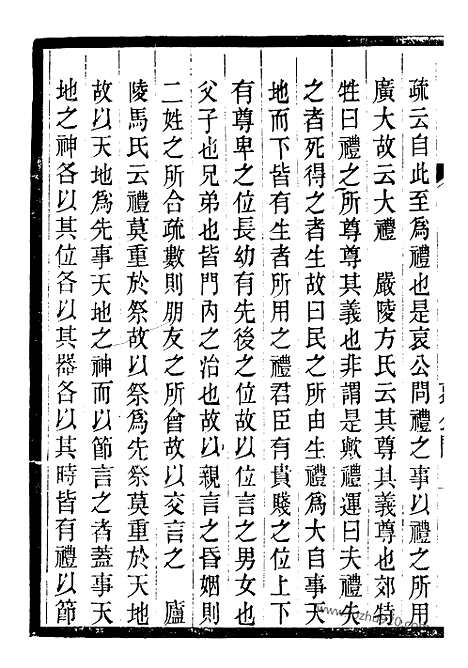 疏云自此至爲禮也是哀公問禮之事以禮之所用
廣大故云大禮　嚴陵方氏云其尊其義尊也郊特
牲曰禮之所尊尊其義也非謂是歟禮運曰夫禮失
之者死得之者生故曰民之所由生禮爲大自事天
地而下皆有生者所用之禮君臣有貴賤之位上下
有尊卑之位長幼有先後之位故以位言之男女也
父子也兄弟也皆門內之治也故以親言之昏姻則
二姓之所合疏數則朋友之所會故以交言之　廬
陵馬氏云禮莫重於祭故以祭爲先祭莫重於天地
故以天地爲先事天地之神而以節言之者蓋事天
地之神各以其位各以其器各以其時皆有禮以節